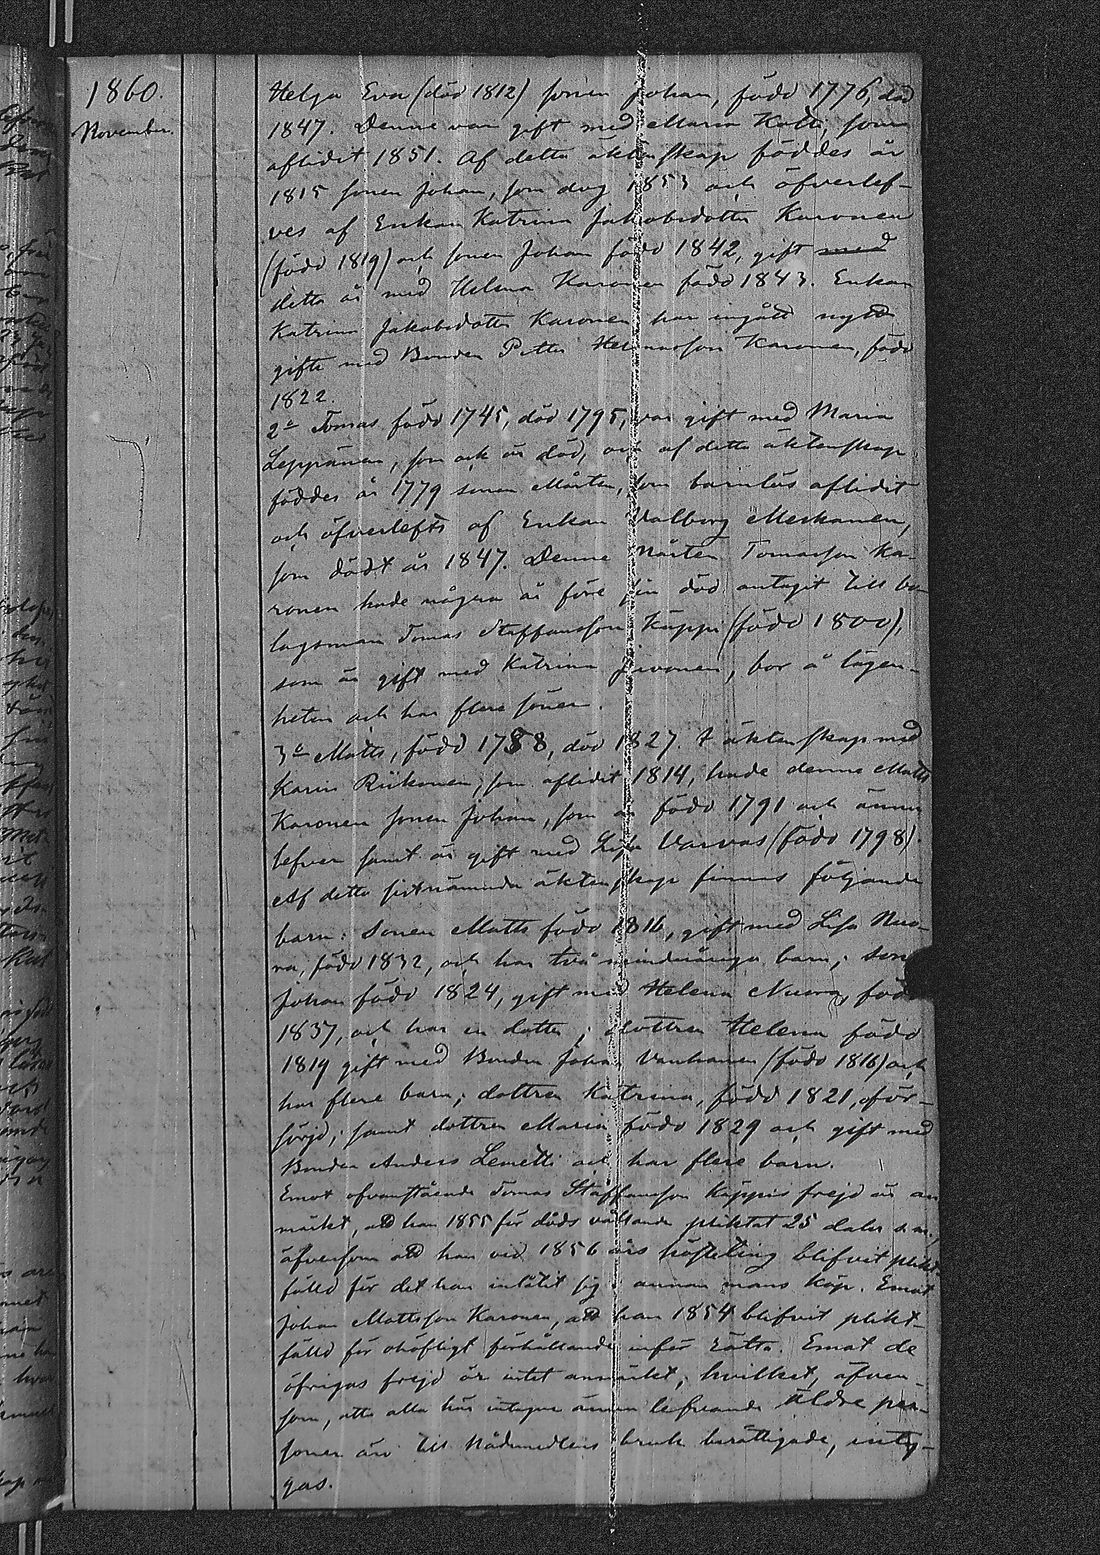 1860.
November.
Helga Eva (död 1812) sonen Johan, född 1776, död
1847. Denne var gift med Maria Kotti, som
aflidit 1851. Af detta äktenskap föddes år
1815 sonen Johan, som dog 1853 och öfverlef-
ves af Enkan Katrina Jakobsdotter Karonen
(född 1819) och sonen Johan född 1842, gift med
detta år med Helena Karonen född 1843. Enkan
Katrina Jakobsdotter Karonen har ingått nytt
gifte med Bonden Petter Karonen, född
1822.
2o Tomas född 1745, död 1795, var gift med Maria
Leppänen, som ock är död, och af detta äktenskap
föddes år 1779 sonen Mårten, som barnlös aflidit
och öfverlefts af Enkan Valborg Meskanen,
som dödt år 1847. Denne Mårten Tomasson Ka-
ronen hade några år före sin död antagit till bo-
lagsman Tomas Staffansson Käppi (född 1800),
som är gift med Katrina Sivonen, bor å lägen-
heten och har flere söner.
3o Matts, född 1758, död 1827. I äktenskap med
Karin Riikonen, som aflidit 1814, hade denne Matts
Karonen sonen Johan, som är född 1791 och ännu
lefver samt är gift med Lisa Varvas (född 1798).
Af detta sistnämnda äktenskap finnas följande
barn: Sonen Matts född 1816, gift med Lisa Nuo-
ra, född 1832, och har två minderåriga barn; sonen
Johan född 1824, gift med Helena Nuora, född
1837, och har en dotter; dottren Helena född
1819 gift med Bonden Johan Vanhanen (född 1816) och
har flere barn; dottren Katrina, född 1821, oför-
sörjd; samt dottren Maria född 1829 och gift med
Bonden Anders Lemetti och har flere barn.
Emot ofvanstående Tomas Staffansson Käppis frejd är an-
märkt, att han 1855 för döds vållande pliktat 25 daler s.m.
äfvensom att han vid 1856 års hösteting blifvit plikt-
fälld för det han inlåtit sig i annan mans köp. Emot
Johan Mattsson Karonen, att han 1854 blifvit plikt-
fälld för ohöfligt förhållande inför Rätta. Emot de
öfrigas frejd är intet anmärkt; hvilket, äfven-
som, att alla här intagne ännu lefvande äldre per-
soner äro till Nådmedlens bruk berättigade, inty-
gas.